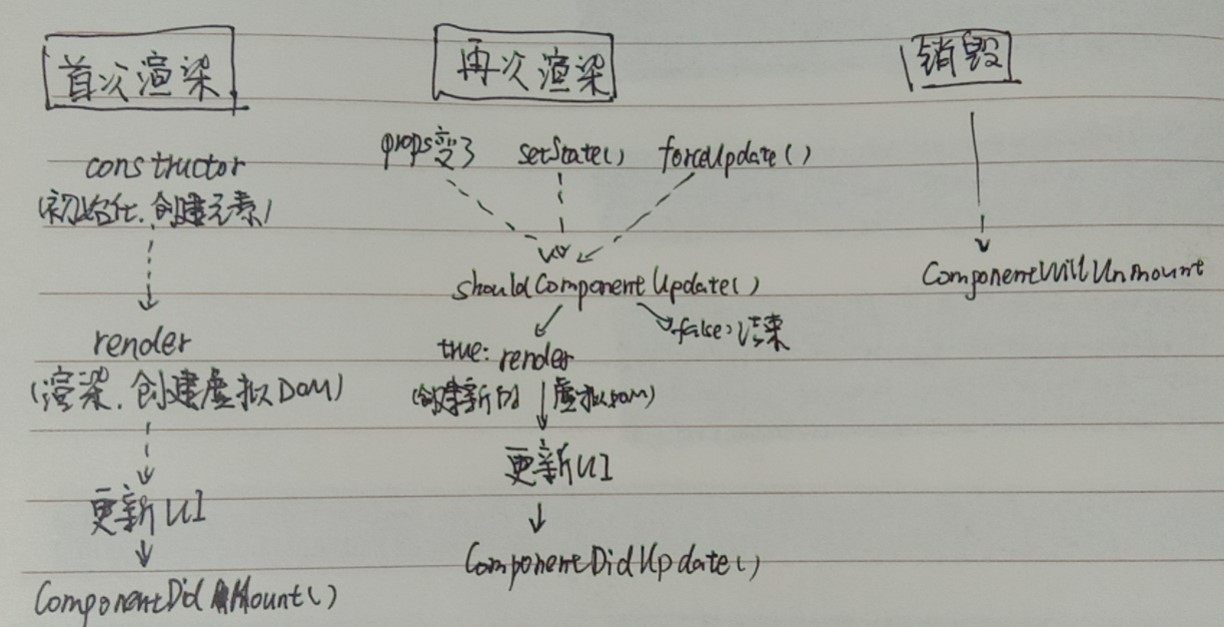 首次渲染
constructor
(初始化.创建元素)
render
(渲染.创建虚拟DOM)
更新UI
ComponentDidMount()
再次渲染
props变了 setState() forceUpdate()
shouldComponentUpdate()
true: render
false:结束
(创建新的 虚拟DOM)
更新UI
ComponentDidUpdate()
销毁
ComponentWillUnmount